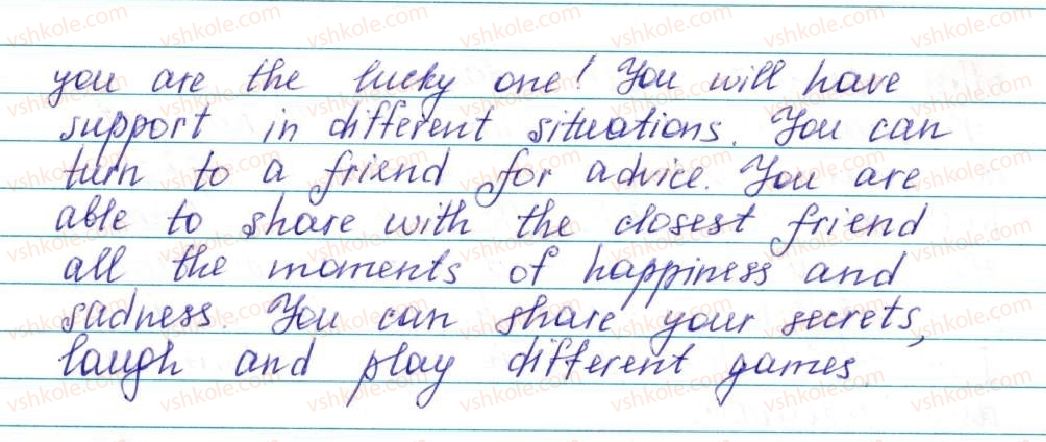 you are the lucky one! You will have
support in different situations. You can
turn to a friend for advice. You are
able to share with the closest friend
all the moments of happiness and
sadness. You can share your secrets,
laugh and play different games